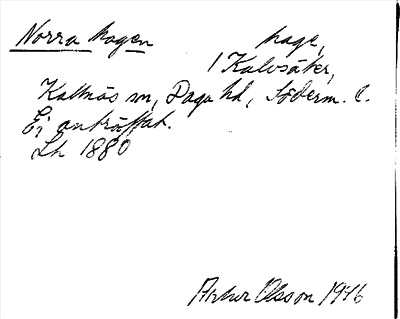 Norra hagen hage,
1 Kalvsäter,
Kattnäs sn, Daga hd, Söderm. l.
Ej anträffat.
Lh 1880
Arthur Olsson 1946